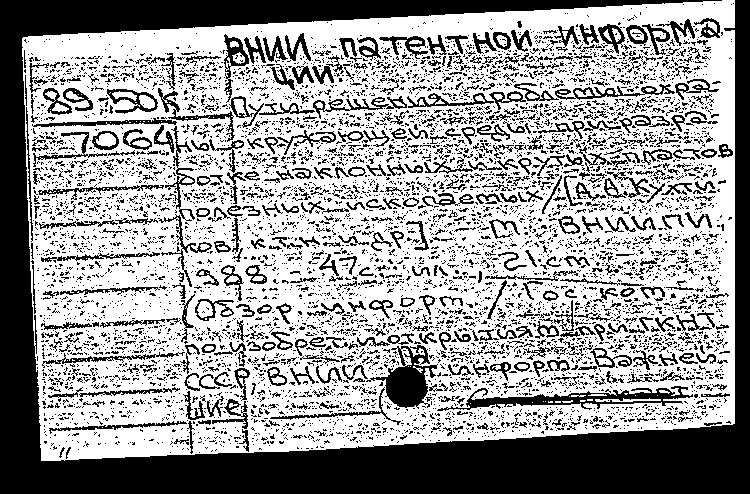 ВНИИ патентной информа-
ции
89-50к Пути решения проблемы охра-
7064 ны окружающей среды при разра-
ботке наклонных и крутых пластов
полезных ископаемых / [А.А. Кухти-
ков, к.т.н. и др]. - М ВНИИПИ,
1988. - 47с. ил., 21 см -
(Обзор. информ. / Гос. ком.
по изобрет. и открытиям при ГКНТ
СССР, ВНИИ пат информ. Важней-
шие
карт